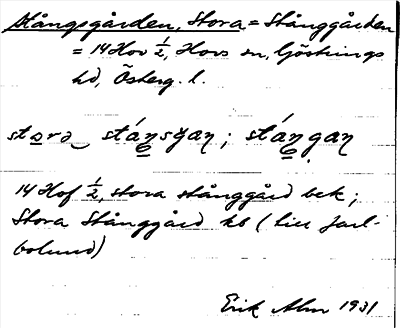 Stångsgården, Stora = Stånggården
= 14 Hov ½, Hovs sn, Göstrings
hd, Österg. l.
stora stánsgan; stángan
14 Hof ½, stora stånggård bek;
Stora Stånggård kb (
Erik Alm 1931